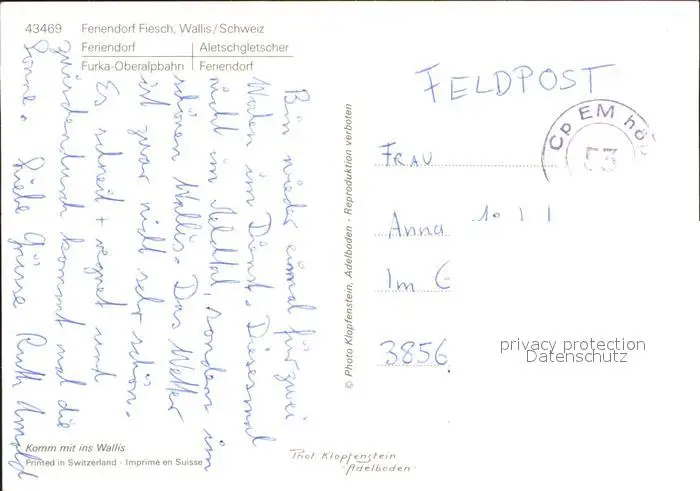 43469 Feriendorf Fiesch, Wallis/Schweiz
Feriendorf | Aletschgletscher
Furka-Oberalpbahn | Feriendorf
Bin wieder einmal für zwei
Wochen im Dienst. Diesesmal
nicht im Feldtal, sondern im
schönen Wallis. Das Wetter
ist zwar nicht sehr schön.
Es schneit + regnet und
zwüschendurch kommt mal die
Sonne. Liebe Grüsse Ruth
Komm mit ins Wallis
Printed in Switzerland · Imprimé en Suisse
© Photo Klopfenstein, Adelboden - Reproduktion verboten
FELDPOST
Cp EM
53
FRAU
Anna
Im
3856
privacy protection
Datenschutz
Phot Klopfenstein
·Adelboden·